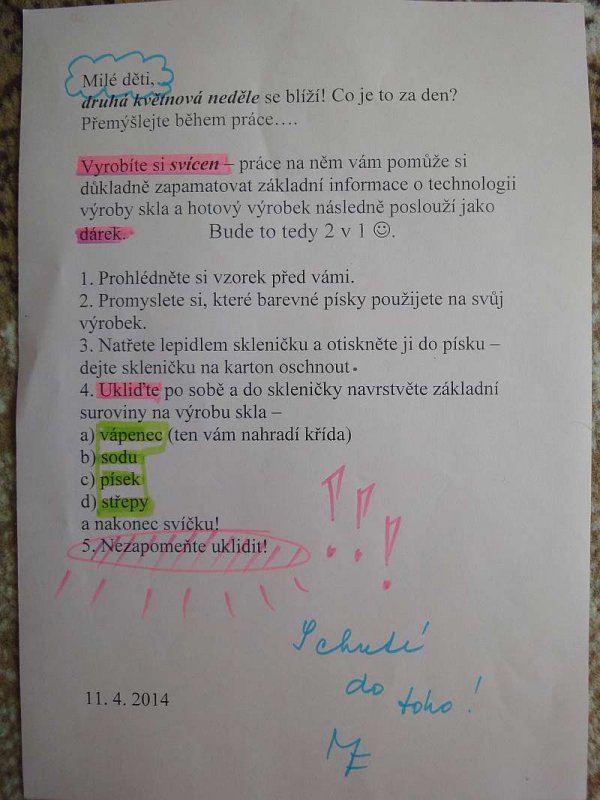 Milé děti,
druhá květnová neděle se blíží! Co je to za den?
Přemýšlejte během práce….
Vyrobíte si svícen – práce na něm vám pomůže si
důkladně zapamatovat základní informace o technologii
výroby skla a hotový výrobek následně poslouží jako
dárek. Bude to tedy 2 v 1 ☺.
1. Prohlédněte si vzorek před vámi.
2. Promyslete si, které barevné písky použijete na svůj
výrobek.
3. Natřete lepidlem skleničku a otiskněte ji do písku –
dejte skleničku na karton oschnout.
4. Ukliďte po sobě a do skleničky navrstvěte základní
suroviny na výrobu skla –
a) vápenec (ten vám nahradí křída)
b) sodu
c) písek
d) střepy
a nakonec svíčku!
5. Nezapomeňte uklidit!
!!!
S chutí
do toho!
MZ
11. 4. 2014